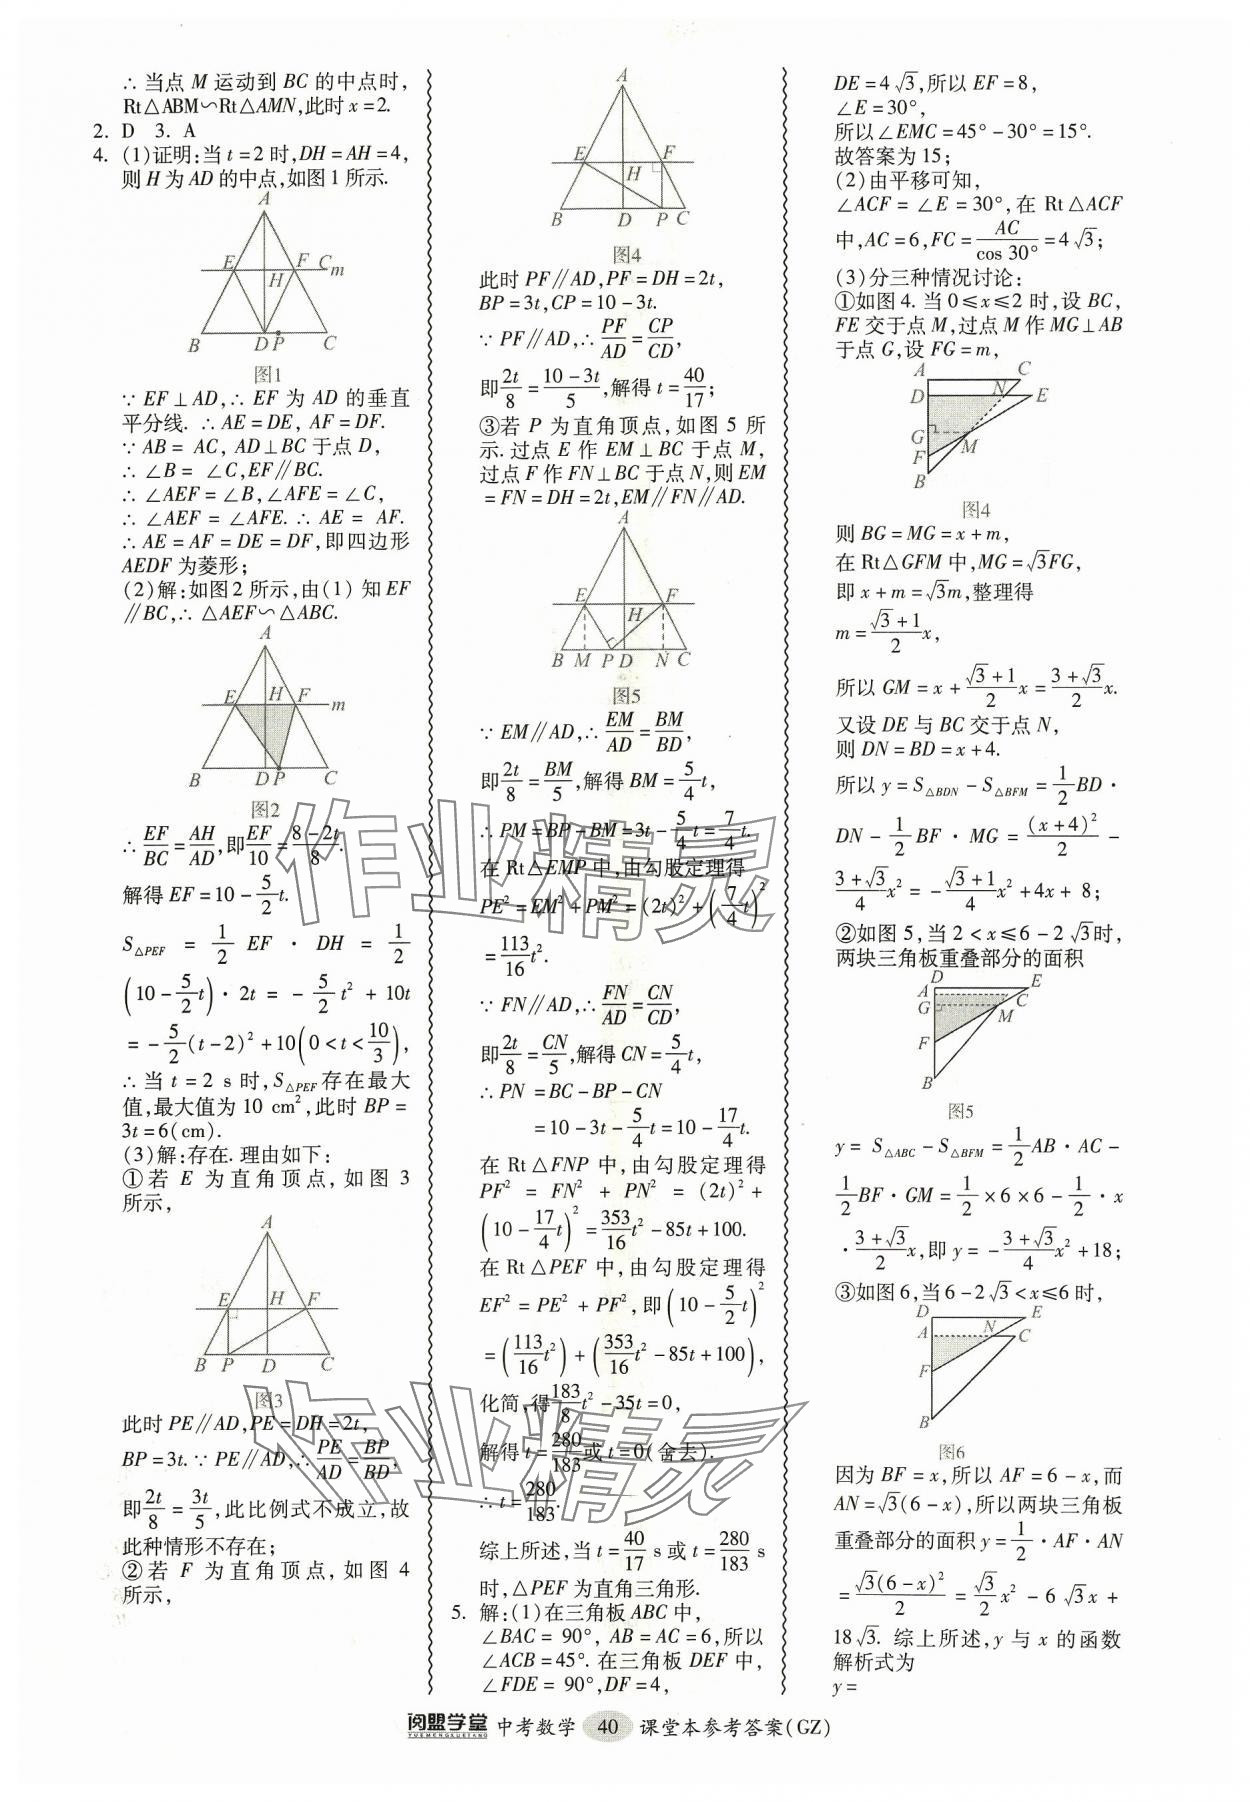 ∴ 当点 M 运动到 BC 的中点时,
Rt△ABM∽Rt△AMN,此时 x=2.
2. D 3. A
4. (1)证明:当 t=2 时,DH=AH=4,
则 H 为 AD 的中点,如图 1 所示.
A
E F C m
H
B D P C
图1
∵ EF⊥AD,∴ EF 为 AD 的垂直
平分线. ∴ AE=DE, AF=DF.
∵ AB= AC, AD⊥BC 于点 D,
∴ ∠B= ∠C,EF∥BC.
∴ ∠AEF=∠B,∠AFE=∠C,
∴ ∠AEF = ∠AFE. ∴ AE = AF.
∴ AE=AF=DE=DF,即四边形
AEDF 为菱形;
(2)解:如图 2 所示,由(1) 知 EF
∥BC,∴ △AEF∽△ABC.
A
E H F m
B D P C
图2
∴ EF/BC = AH/AD,即 EF/10 = (8-2t)/8.
解得 EF=10-5/2 t.
S△PEF = 1/2 EF · DH = 1/2
(10-5/2 t)·2t = -5/2 t² + 10t
=-5/2(t-2)²+10(0<t<10/3),
∴ 当 t=2 s 时,S△PEF存在最大
值,最大值为 10 cm²,此时 BP=
3t=6(cm).
(3)解:存在. 理由如下:
①若 E 为直角顶点,如图 3
所示,
A
E H F
B P D C
图3
此时 PE∥AD,PE=DH=2t,
BP=3t. ∵ PE∥AD,∴ PE/AD = BP/BD,
即 2t/8 = 3t/5,此比例式不成立,故
此种情形不存在;
②若 F 为直角顶点,如图 4
所示,
A
E F
H
B D P C
图4
此时 PF∥AD,PF=DH=2t,
BP=3t,CP=10-3t.
∵ PF∥AD,∴ PF/AD = CP/CD,
即 2t/8 = (10-3t)/5,解得 t=40/17;
③若 P 为直角顶点,如图 5 所
示.过点 E 作 EM⊥BC 于点 M,
过点 F 作 FN⊥BC 于点 N,则 EM
=FN=DH=2t,EM∥FN∥AD.
A
E F
H
B M P D N C
图5
∵ EM∥AD,∴ EM/AD = BM/BD,
即 2t/8 = BM/5,解得 BM=5/4 t,
∴ PM=BP-BM=3t-5/4 t=7/4 t.
在 Rt△EMP 中,由勾股定理得
PE²=EM²+PM²=(2t)²+(7/4 t)²
=113/16 t².
∵ FN∥AD,∴ FN/AD = CN/CD,
即 2t/8 = CN/5,解得 CN=5/4 t,
∴ PN =BC-BP-CN
=10-3t-5/4 t=10-17/4 t.
在 Rt△FNP 中,由勾股定理得
PF² = FN² + PN² = (2t)²+
(10-17/4 t)²=353/16 t²-85t+100.
在 Rt△PEF 中,由勾股定理得
EF²=PE²+PF²,即(10-5/2 t)²
=(113/16 t²)+(353/16 t²-85t+100),
化简,得 183/8 t²-35t=0,
解得 t=280/183或 t=0(舍去).
∴ t=280/183.
综上所述,当 t=40/17 s 或 t=280/183 s
时,△PEF 为直角三角形.
5. 解:(1)在三角板 ABC 中,
∠BAC= 90°, AB=AC=6,所以
∠ACB=45°. 在三角板 DEF 中,
∠FDE= 90°,DF=4,
DE=4√3,所以 EF=8,
∠E=30°,
所以∠EMC=45°-30°=15°.
故答案为 15;
(2)由平移可知,
∠ACF=∠E=30°,在 Rt△ACF
中,AC=6,FC=AC/cos 30°=4√3;
(3)分三种情况讨论:
①如图 4. 当 0≤x≤2 时,设 BC,
FE 交于点 M,过点 M 作 MG⊥AB
于点 G,设 FG=m,
A C
D N E
G M
F
B
图4
则 BG=MG=x+m,
在 Rt△GFM 中,MG=√3FG,
即 x+m=√3m,整理得
m=(√3+1)/2 x,
所以 GM=x+(√3+1)/2 x=(3+√3)/2 x.
又设 DE 与 BC 交于点 N,
则 DN=BD=x+4.
所以 y=S△BDN-S△BFM=1/2 BD·
DN-1/2 BF·MG=(x+4)²/2-
(3+√3)/4 x²=-(√3+1)/4 x²+4x+8;
②如图 5,当 2<x≤6-2√3时,
两块三角板重叠部分的面积
D E
A C
G M
F
B
图5
y= S△ABC-S△BFM=1/2 AB·AC-
1/2 BF·GM=1/2×6×6-1/2·x
·(3+√3)/2 x,即 y=-(3+√3)/4 x²+18;
③如图 6,当 6-2√3<x≤6 时,
D E
A N C
F
B
图6
因为 BF=x,所以 AF=6-x,而
AN=√3(6-x),所以两块三角板
重叠部分的面积 y=1/2·AF·AN
=√3(6-x)²/2=√3/2 x²-6√3x+
18√3. 综上所述,y 与 x 的函数
解析式为
y=
作业精灵
作业精灵
阅盟学堂 YUEMENGXUETANG 中考数学 40 课堂本参考答案(GZ)